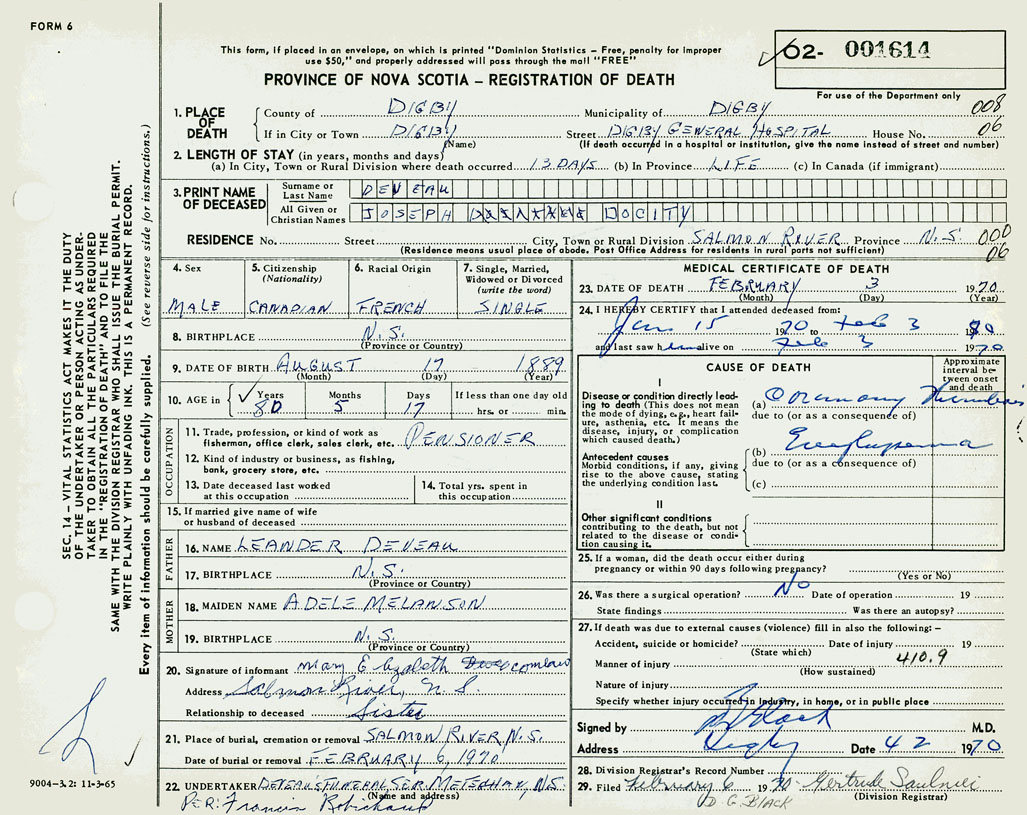 FORM 6
This form, if placed in an envelope, on which is printed "Dominion Statistics – Free, penalty for improper
use $50," and properly addressed will pass through the mail "FREE"
O2- 001614
PROVINCE OF NOVA SCOTIA – REGISTRATION OF DEATH
For use of the Department only
1. PLACE OF DEATH
County of DIGBY Municipality of DIGBY 008
If in City or Town DIGBY Street DIGBY GENERAL HOSPITAL House No. 06
(Name) (If death occurred in a hospital or institution, give the name instead of street and number)
2. LENGTH OF STAY (in years, months and days)
(a) In City, Town or Rural Division where death occurred 13 DAYS (b) In Province LIFE (c) In Canada (if immigrant)
3. PRINT NAME OF DECEASED
Surname or Last Name DEVEAU
All Given or Christian Names JOSEPH DOCITY
RESIDENCE No. Street City, Town or Rural Division SALMON RIVER Province N.S. 000
(Residence means usual place of abode. Post Office Address for residents in rural parts not sufficient) 06
4. Sex
MALE
5. Citizenship
(Nationality)
CANADIAN
6. Racial Origin
FRENCH
7. Single, Married,
Widowed or Divorced
(write the word)
SINGLE
8. BIRTHPLACE N.S.
(Province or Country)
9. DATE OF BIRTH AUGUST 17 1889
(Month) (Day) (Year)
10. AGE in
Years Months Days If less than one day old
80 5 17 hrs. or min.
OCCUPATION
11. Trade, profession, or kind of work as
fisherman, office clerk, sales clerk, etc. PENSIONER
12. Kind of industry or business, as fishing,
bank, grocery store, etc.
13. Date deceased last worked
at this occupation
14. Total yrs. spent in
this occupation
15. If married give name of wife
or husband of deceased
FATHER
16. NAME LEANDER DEVEAU
17. BIRTHPLACE N.S.
(Province or Country)
MOTHER
18. MAIDEN NAME ADELE MELANSON
19. BIRTHPLACE N.S.
(Province or Country)
20. Signature of informant Mary Elizabeth Comeau
Address Salmon River, N.S.
Relationship to deceased Sister
21. Place of burial, cremation or removal SALMON RIVER N.S.
Date of burial or removal FEBRUARY 6, 1970
22. UNDERTAKER DEVEAU'S FUNERAL SER. METEGHAN, N.S.
(Name and address)
PER: Francis Robichaud
MEDICAL CERTIFICATE OF DEATH
23. DATE OF DEATH FEBRUARY 3 1970
(Month) (Day) (Year)
24. I HEREBY CERTIFY that I attended deceased from:
Jan 15 1970 to Feb 3 1970
and last saw him alive on Feb 3 1970
CAUSE OF DEATH
Approximate
interval be-
tween onset
and death
I
Disease or condition directly lead-
ing to death (This does not mean
the mode of dying, e.g., heart fail-
ure, asthenia, etc. It means the
disease, injury, or complication
which caused death.)
(a) Coronary Thrombosis
due to (or as a consequence of)
Antecedent causes
Morbid conditions, if any, giving
rise to the above cause, stating
the underlying condition last.
(b)
due to (or as a consequence of)
(c)
II
Other significant conditions
contributing to the death, but not
related to the disease or condi-
tion causing it.
25. If a woman, did the death occur either during
pregnancy or within 90 days following pregnancy?
(Yes or No)
26. Was there a surgical operation? NO Date of operation 19
State findings Was there an autopsy?
27. If death was due to external causes (violence) fill in also the following: –
Accident, suicide or homicide? Date of injury 19
(State which)
410.9
Manner of injury
(How sustained)
Nature of injury
Specify whether injury occurred in Industry, in home, or in public place
Signed by Black M.D.
Address Digby Date 4 2 1970
28. Division Registrar's Record Number
29. Filed February 6 1970 Gertrude Saulnier
D. G. BLACK (Division Registrar)
SEC. 14 – VITAL STATISTICS ACT MAKES IT THE DUTY
OF THE UNDERTAKER OR PERSON ACTING AS UNDER-
TAKER TO OBTAIN ALL THE PARTICULARS REQUIRED
IN THE "REGISTRATION OF DEATH" AND TO FILE THE
SAME WITH THE DIVISION REGISTRAR WHO SHALL ISSUE THE BURIAL PERMIT.
WRITE PLAINLY WITH UNFADING INK. THIS IS A PERMANENT RECORD.
Every item of information should be carefully supplied. (See reverse side for instructions.)
9004–3.2: 11-3-65